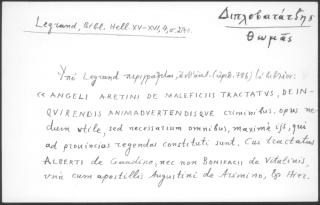 Legrand, Bibl. Hell. XV-XVI, 4, σ. 271.
Διπλοβατάτζης
Θωμᾶς
Ὑπὸ Legrand περιγράφεται, τὸ βιβλίον:
« ANGELI ARETINI DE MALEFICIIS TRACTATUS, DE IN-
QUIRENDIS ANIMADVERTENDISQUE criminibus. opus ne
dum utile, sed necessarium omnibus, maximè ijs, qui
ad provincias regendas constituti sunt. Cui tractatus
ALBERTI de Gandino, nec non BONIFACII de Vitalinis,
vnà cum apostillis Augustini de Arimino, Hier.